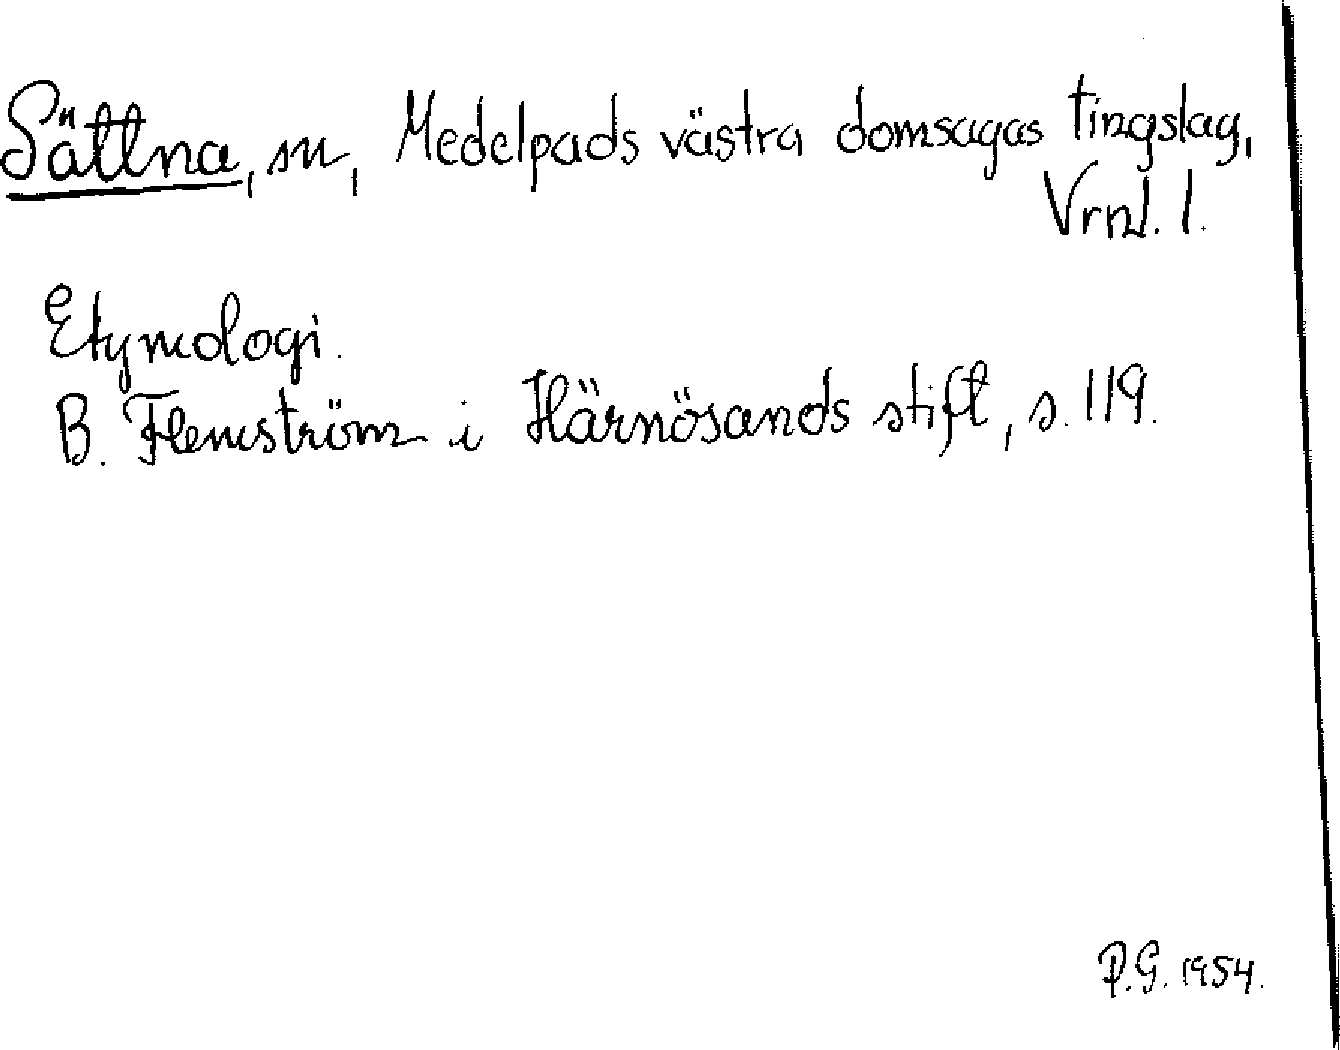 Sättna, sn, Medelpads västra domsagas tingslag,
Vrnl. l.
Etymologi.
B. Flemström i Härnösands stift, s. 119.
P.G. 1954.